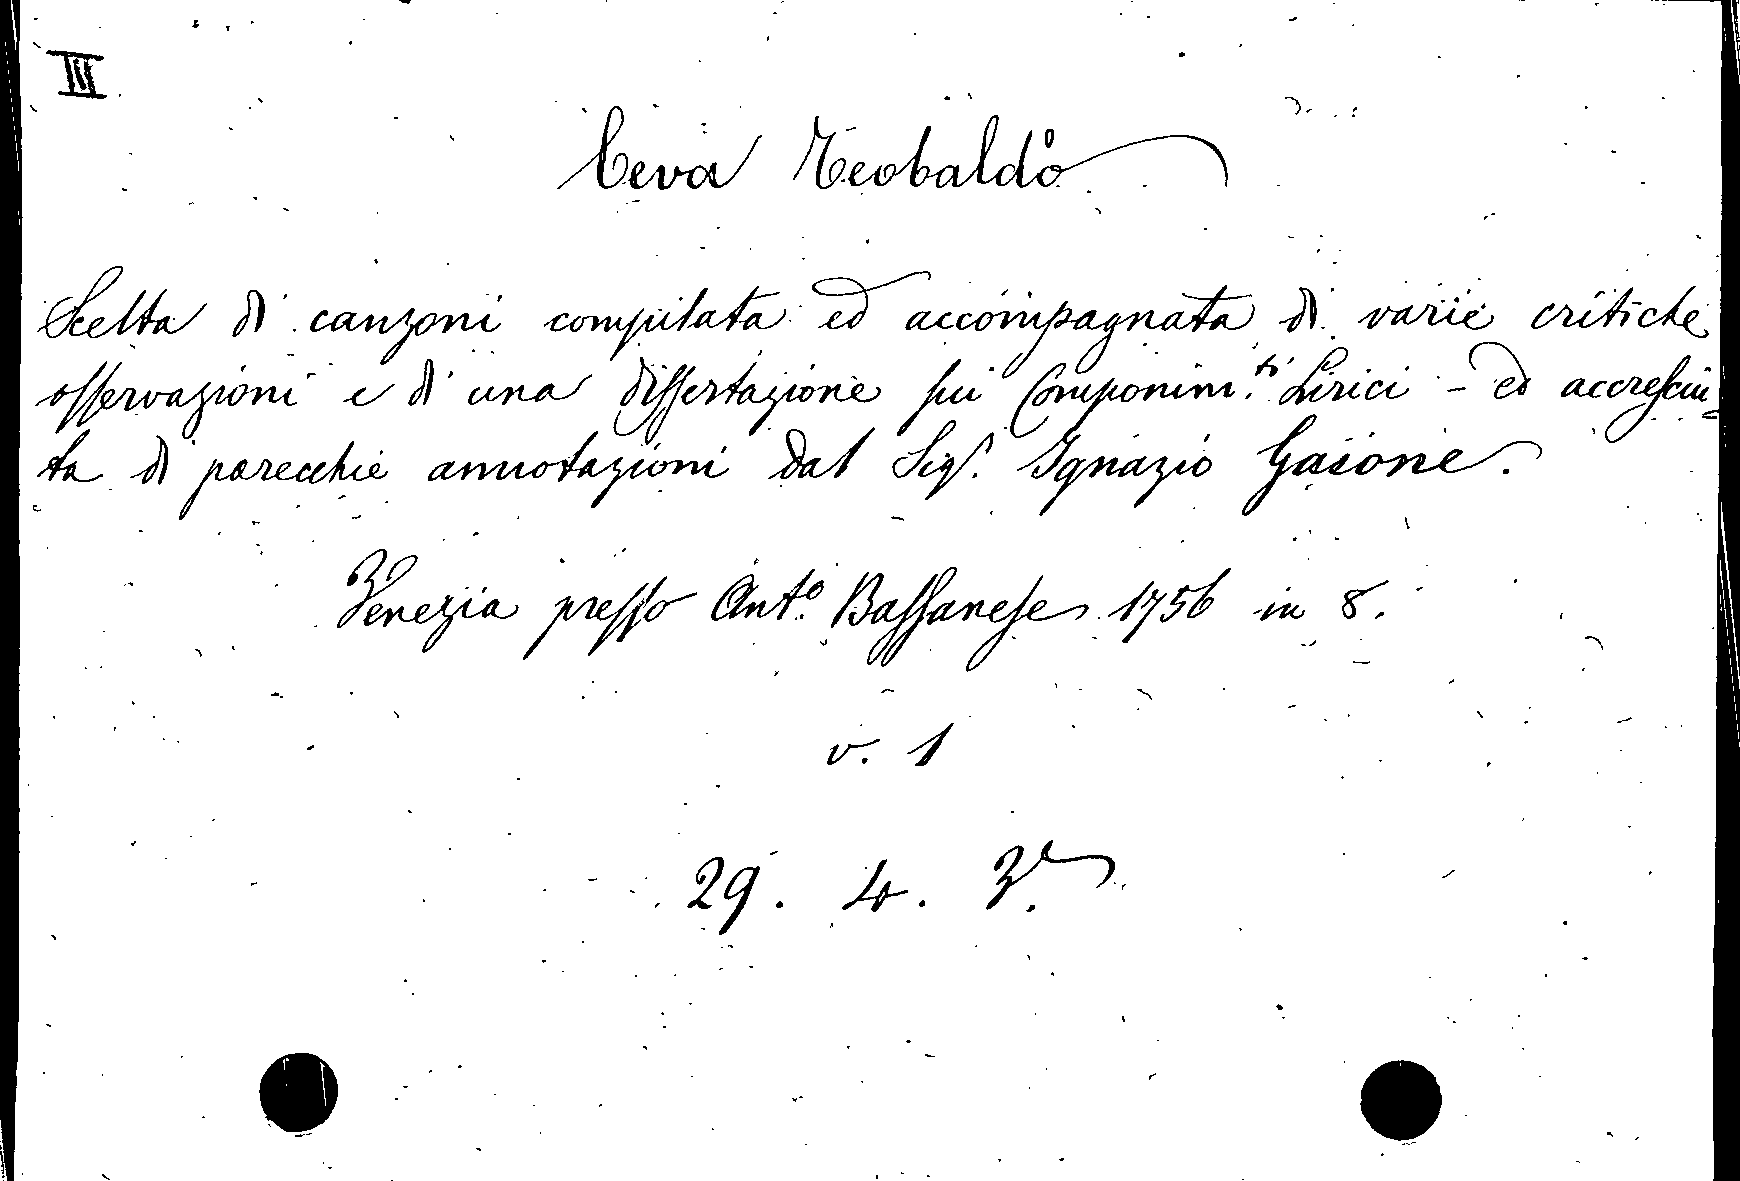 III
Ceva Teobaldo
Scelta di canzoni compilata ed accompagnata di varie critiche
osservazioni e di una dissertazione sui Componim.ti Lirici - ed accresciu=
ta di parecchie annotazioni dal Sig.r Ignazio Gaione.
Venezia presso Ant.o Bassanese 1756 in 8.
v. 1
29. 4. 3.